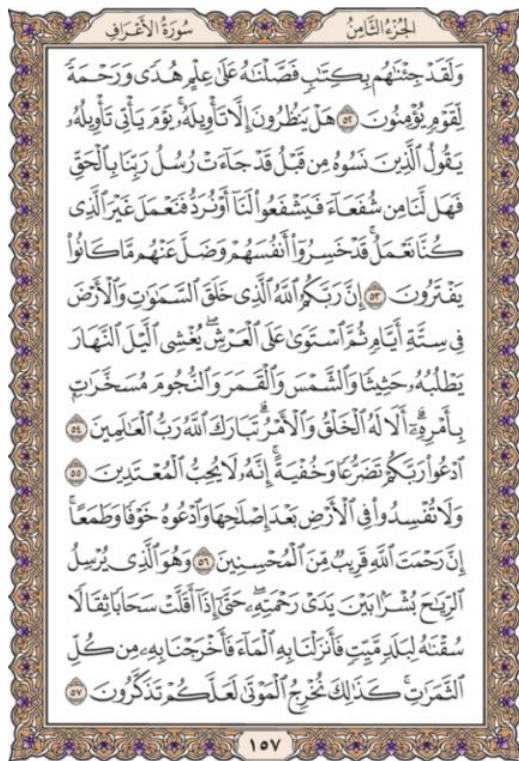 الجُزْءُ الثَّامِنُ
سُورَةُ الأَعْرَافِ
وَلَقَدْ جِئْنَٰهُم بِكِتَٰبٍ فَصَّلْنَٰهُ عَلَىٰ عِلْمٍ هُدًى وَرَحْمَةً
لِّقَوْمٍ يُؤْمِنُونَ ٥٢ هَلْ يَنظُرُونَ إِلَّا تَأْوِيلَهُۥ ۚ يَوْمَ يَأْتِى تَأْوِيلُهُۥ
يَقُولُ ٱلَّذِينَ نَسُوهُ مِن قَبْلُ قَدْ جَآءَتْ رُسُلُ رَبِّنَا بِٱلْحَقِّ
فَهَل لَّنَا مِن شُفَعَآءَ فَيَشْفَعُوا۟ لَنَآ أَوْ نُرَدُّ فَنَعْمَلَ غَيْرَ ٱلَّذِى
كُنَّا نَعْمَلُ ۚ قَدْ خَسِرُوٓا۟ أَنفُسَهُمْ وَضَلَّ عَنْهُم مَّا كَانُوا۟
يَفْتَرُونَ ٥٣ إِنَّ رَبَّكُمُ ٱللَّهُ ٱلَّذِى خَلَقَ ٱلسَّمَٰوَٰتِ وَٱلْأَرْضَ
فِى سِتَّةِ أَيَّامٍ ثُمَّ ٱسْتَوَىٰ عَلَى ٱلْعَرْشِ ۖ يُغْشِى ٱلَّيْلَ ٱلنَّهَارَ
يَطْلُبُهُۥ حَثِيثًا وَٱلشَّمْسَ وَٱلْقَمَرَ وَٱلنُّجُومَ مُسَخَّرَٰتٍۭ
بِأَمْرِهِۦٓ ۗ أَلَا لَهُ ٱلْخَلْقُ وَٱلْأَمْرُ ۗ تَبَارَكَ ٱللَّهُ رَبُّ ٱلْعَٰلَمِينَ ٥٤
ٱدْعُوا۟ رَبَّكُمْ تَضَرُّعًا وَخُفْيَةً ۚ إِنَّهُۥ لَا يُحِبُّ ٱلْمُعْتَدِينَ ٥٥
وَلَا تُفْسِدُوا۟ فِى ٱلْأَرْضِ بَعْدَ إِصْلَٰحِهَا وَٱدْعُوهُ خَوْفًا وَطَمَعًا ۚ
إِنَّ رَحْمَتَ ٱللَّهِ قَرِيبٌ مِّنَ ٱلْمُحْسِنِينَ ٥٦ وَهُوَ ٱلَّذِى يُرْسِلُ
ٱلرِّيَٰحَ بُشْرًۢا بَيْنَ يَدَىْ رَحْمَتِهِۦ ۖ حَتَّىٰٓ إِذَآ أَقَلَّتْ سَحَابًا ثِقَالًا
سُقْنَٰهُ لِبَلَدٍ مَّيِّتٍ فَأَنزَلْنَا بِهِ ٱلْمَآءَ فَأَخْرَجْنَا بِهِۦ مِن كُلِّ
ٱلثَّمَرَٰتِ ۚ كَذَٰلِكَ نُخْرِجُ ٱلْمَوْتَىٰ لَعَلَّكُمْ تَذَكَّرُونَ ٥٧
١٥٧